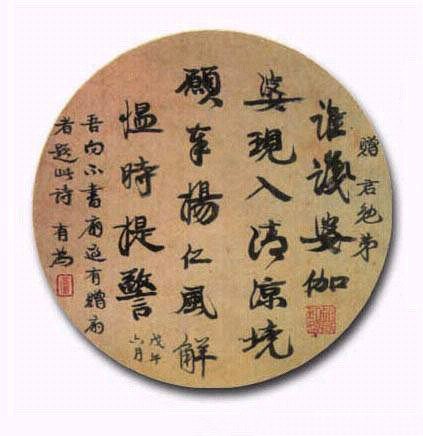 贈君勉弟
誰識婆伽
婆現入清涼境
願奉揚仁風解
慍時提警
戊午
六月
吾向不書扇有贈扇
者題此詩 有為